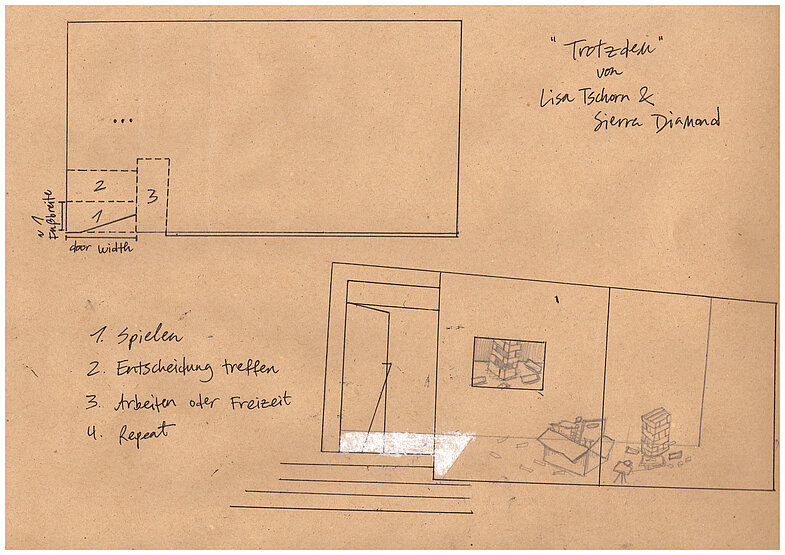 "Trotzdem"
von
Lisa Tschorn &
Sierra Diamond
...
2
3
1
~ 1 Fußbreite
door width
1. Spielen
2. Entscheidung treffen
3. Arbeiten oder Freizeit
4. Repeat